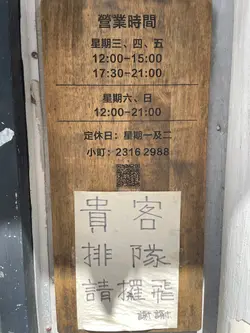 營業時間
星期三、四、五
12:00-15:00
17:30-21:00
星期六、日
12:00-21:00
定休日：星期一及二
小町：2316 2988
貴客
排隊
請擢飛
謝謝